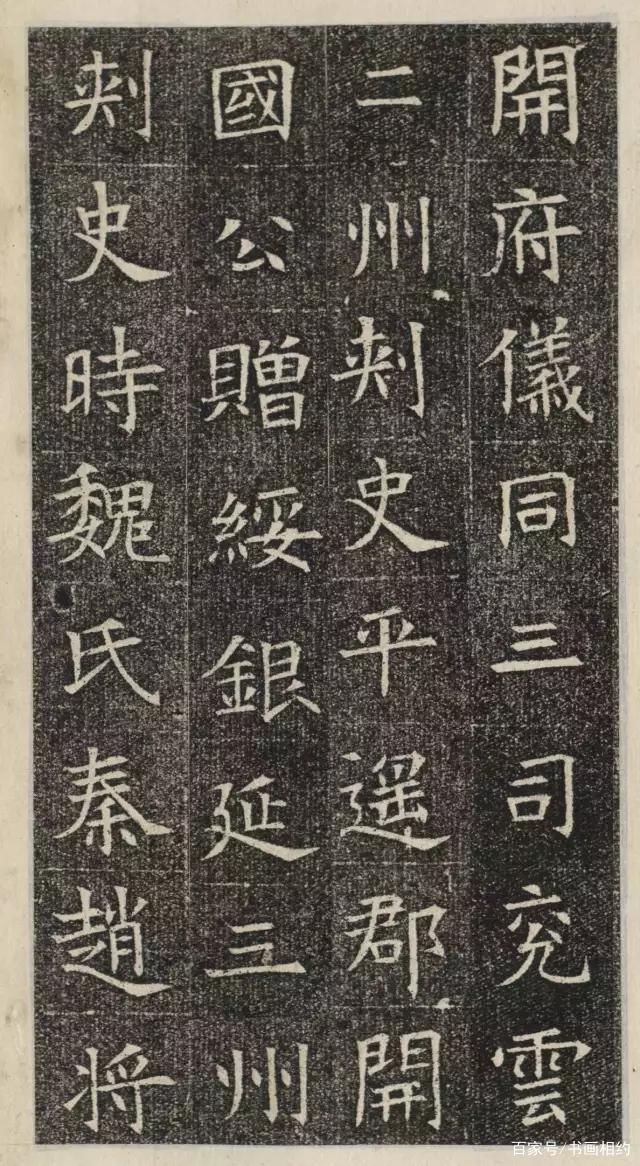 開府儀同三司兗雲
二州刺史平遥郡開
國公贈綏銀延三州
刺史時魏氏秦趙将
百家号/书画相约